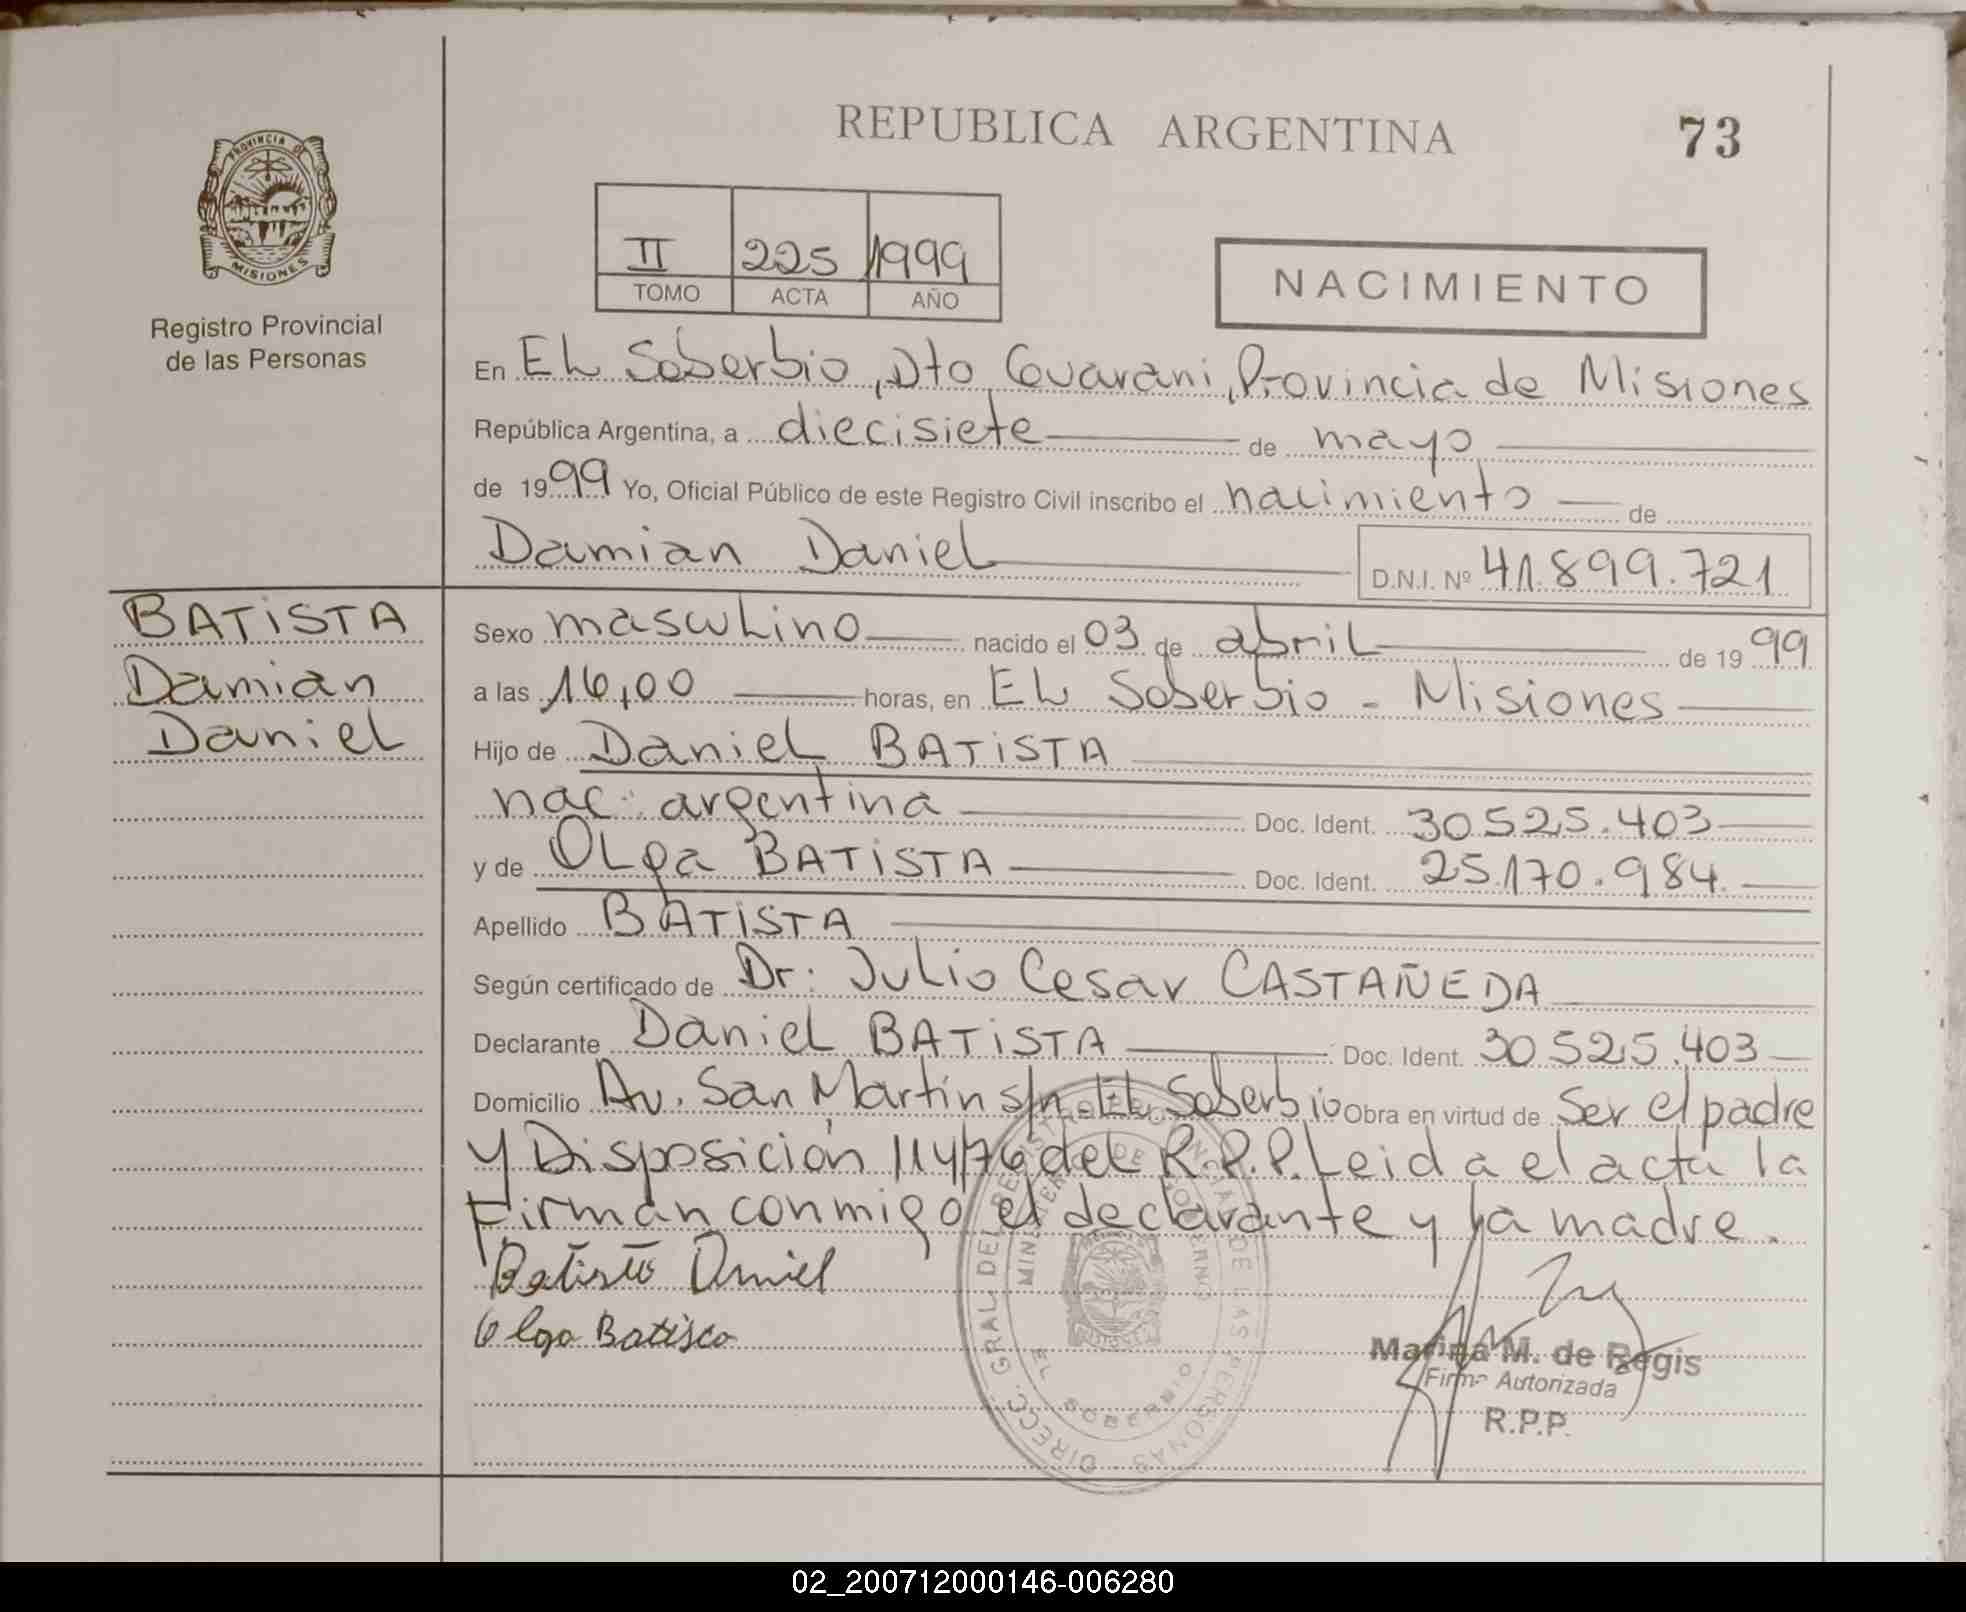 REPUBLICA ARGENTINA
73
PROVINCIA DE
MISIONES
Registro Provincial
de las Personas
II 225 1999
TOMO ACTA AÑO
NACIMIENTO
En EL Soberbio, Dto Guarani, Provincia de Misiones
República Argentina, a diecisiete de mayo
de 1999 Yo, Oficial Público de este Registro Civil inscribo el nacimiento de
Damian Daniel D.N.I. Nº 41.899.721
BATISTA
Damian
Daniel
Sexo masculino nacido el 03 de abril de 1999
a las 16,00 horas, en EL Soberbio - Misiones
Hijo de Daniel BATISTA
nac: argentina Doc. Ident. 30.525.403
y de OLga BATISTA Doc. Ident. 25.170.984.
Apellido BATISTA
Según certificado de Dr: Julio Cesar CASTAÑEDA
Declarante Daniel BATISTA Doc. Ident. 30.525.403
Domicilio Av. San Martín s/n. EL Soberbio Obra en virtud de Ser el padre
y Disposición 114/76 del R.P.P. Leida el acta la
Firman conmigo el declarante y la madre.
Batista Daniel
Olga Batista
DIRECC. GRAL DEL REGISTRO PROVINCIAL DE LAS PERSONAS
MINISTERIO DE GOBIERNO
EL SOBERBIO
Marina M. de Regis
Firma Autorizada
R.P.P.
02_200712000146-006280